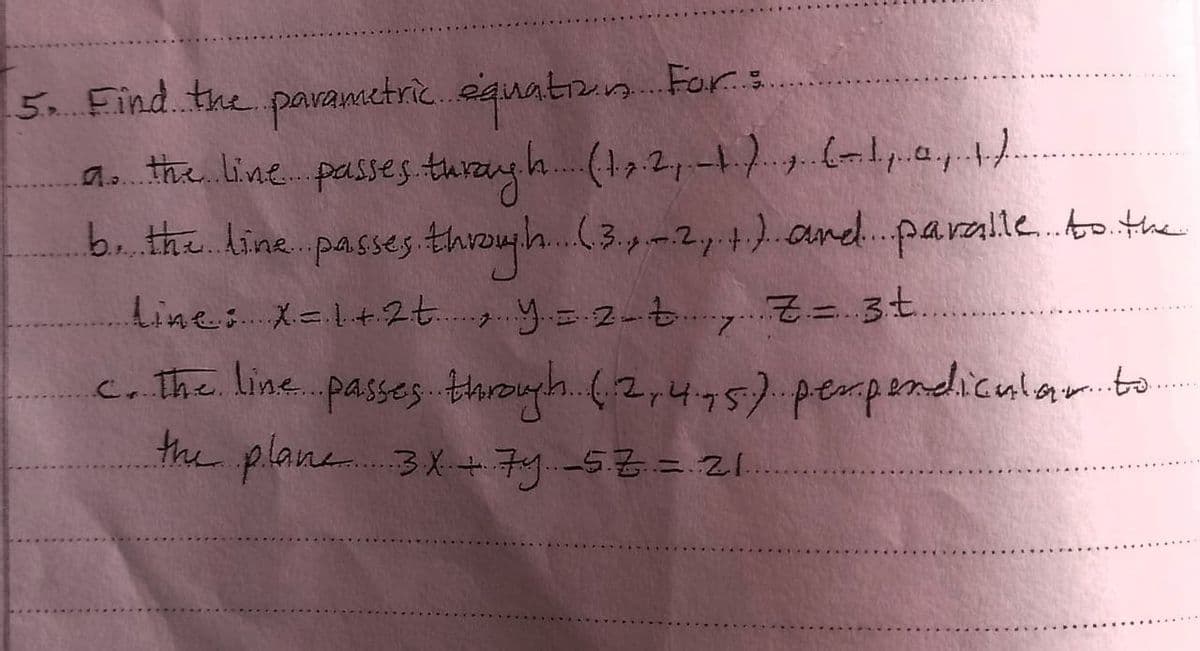 5. Find the parametric equation For:
a. the line passes through (1,2,-1), (-1,0,1)
b. the line passes through (3,-2,1) and paralle to the
line: x=1+2t, y=2-t, Z=3t
c. The line passes through (2,4,5) perpendicular to
the plane 3X+7y-5Z=21